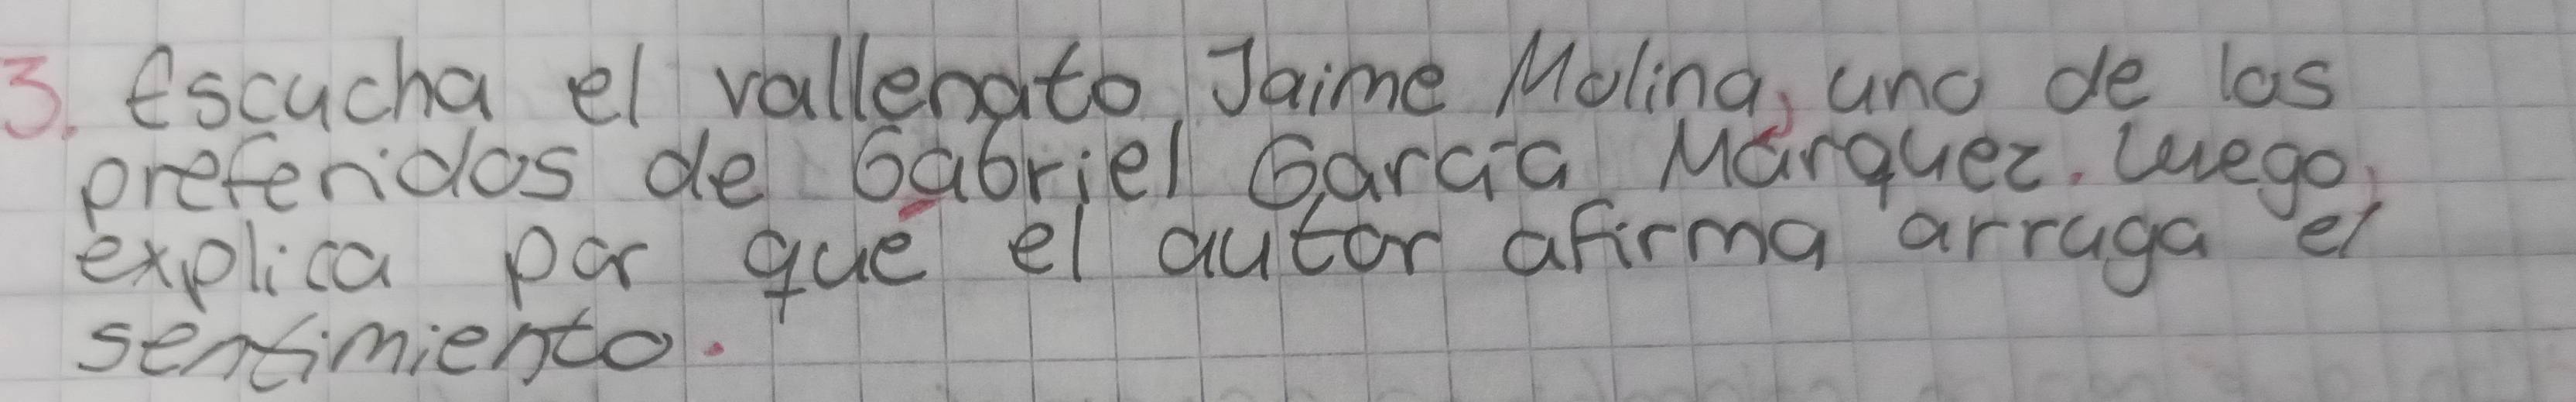 3. Escucha el vallenato Jaime Molina, uno de los
preferidos de Gabriel García Márquez. Luego,
explica por qué el autor afirma arruga el
sentimiento.